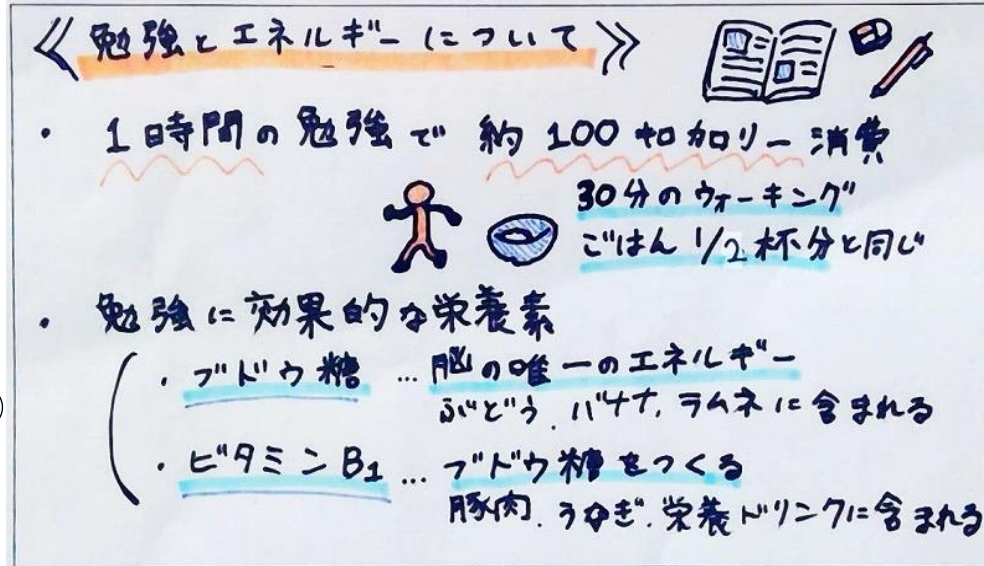 《勉強とエネルギーについて》
・ 1時間の勉強で 約100キロカロリー消費
30分のウォーキング
ごはん 1/2 杯分と同じ
・ 勉強に効果的な栄養素
・ブドウ糖 … 脳の唯一のエネルギー
ぶどう、バナナ、ラムネに含まれる
・ビタミンB1 … ブドウ糖をつくる
豚肉、うなぎ、栄養ドリンクに含まれる